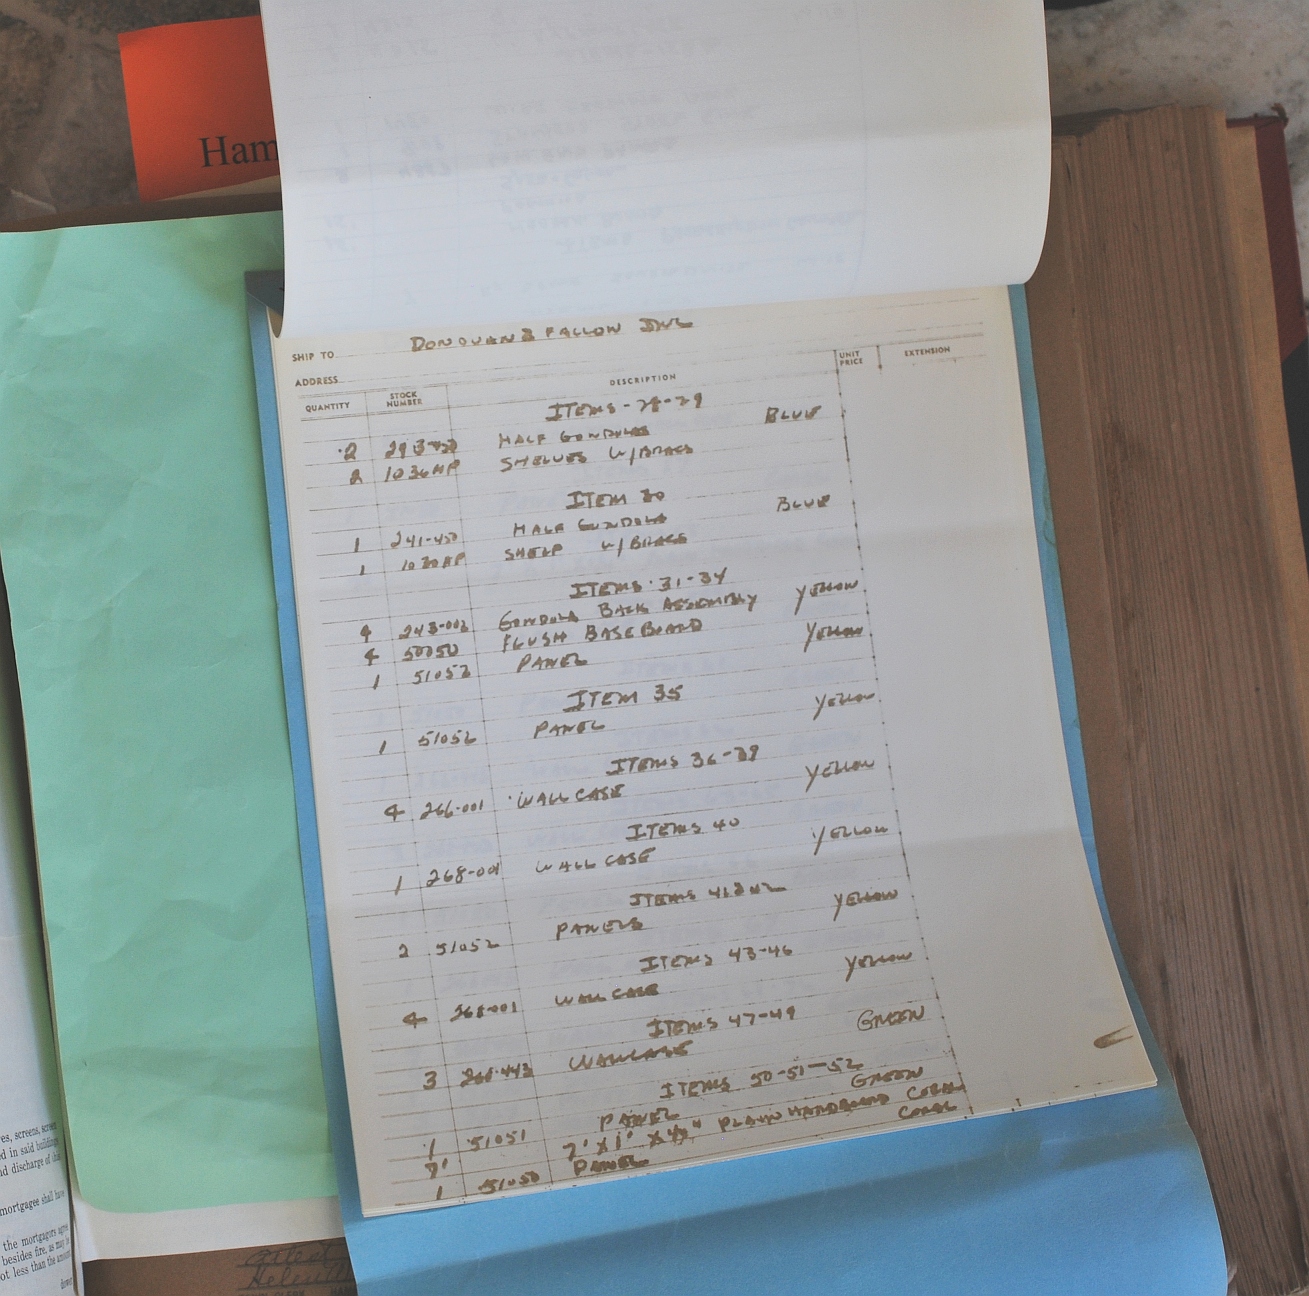 Ham
SHIP TO DONOVAN & FALLON INC
ADDRESS
QUANTITY STOCK NUMBER DESCRIPTION UNIT PRICE EXTENSION
ITEMS-28-29
2 HALF GONDOLAS BLUE
2 1036HP SHELVES W/BRACS
ITEM 30
1 241-450 HALF GONDOLA BLUE
1 1030HP SHELF W/BRACS
ITEMS 31-34
4 243-002 GONDOLA BACK ASSEMBLY YELLOW
4 50750 FLUSH BASEBOARD YELLOW
1 51052 PANEL
ITEM 35
1 51052 PANEL YELLOW
ITEMS 36-39
4 266-001 WALL CASE YELLOW
ITEMS 40
1 268-001 WALL CASE YELLOW
ITEMS 41&42
2 51052 PANELS YELLOW
ITEMS 43-46
4 WALL CASE YELLOW
ITEMS 47-49
3 WALLCASE GREEN
ITEMS 50-51-52
1 51051 PANEL GREEN
7' 7' X 1' X PLAIN HARDBOARD CORAL
1 51050 PANEL CORAL
es, screens, screen
d in said buildings
nd discharge of
mortgagee shall have
the mortgagors agree
besides fire, as may
ot less than the amount